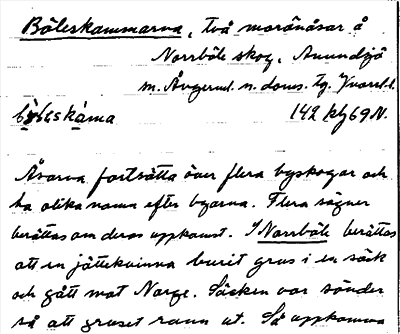 Böleskammarna, två moränåsar å
Norrböle skog, Anundsjö
m. Ångerml. n. doms. tg.
142 kly 69 N.
Åsarna fortsätta över flera byskogar och
ha olika namn efter byarna. Flera sägner
berättas om deras uppkomst. I Norrböle berättas
att en jättekvinna burit grus i en säck
och gått mot Norge. Säcken var sönder
så att gruset rann ut. Så uppkomna